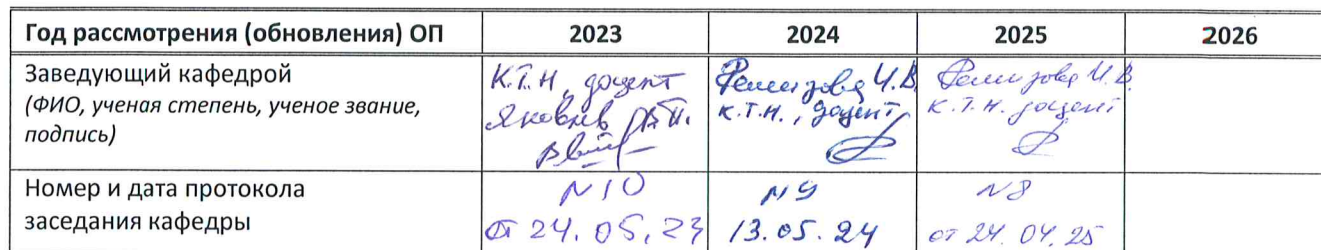 Год рассмотрения (обновления) ОП 2023 2024 2025 2026
Заведующий кафедрой
(ФИО, ученая степень, ученое звание,
подпись)
К.Т.Н, доцент
Яковлев
Ремизова И.В.
к.т.н., доцент
Ремизова И.В.
к.т.н. доцент
Номер и дата протокола
заседания кафедры
N10
от 24.05.23
N9
13.05.24
N8
от 24.04.25